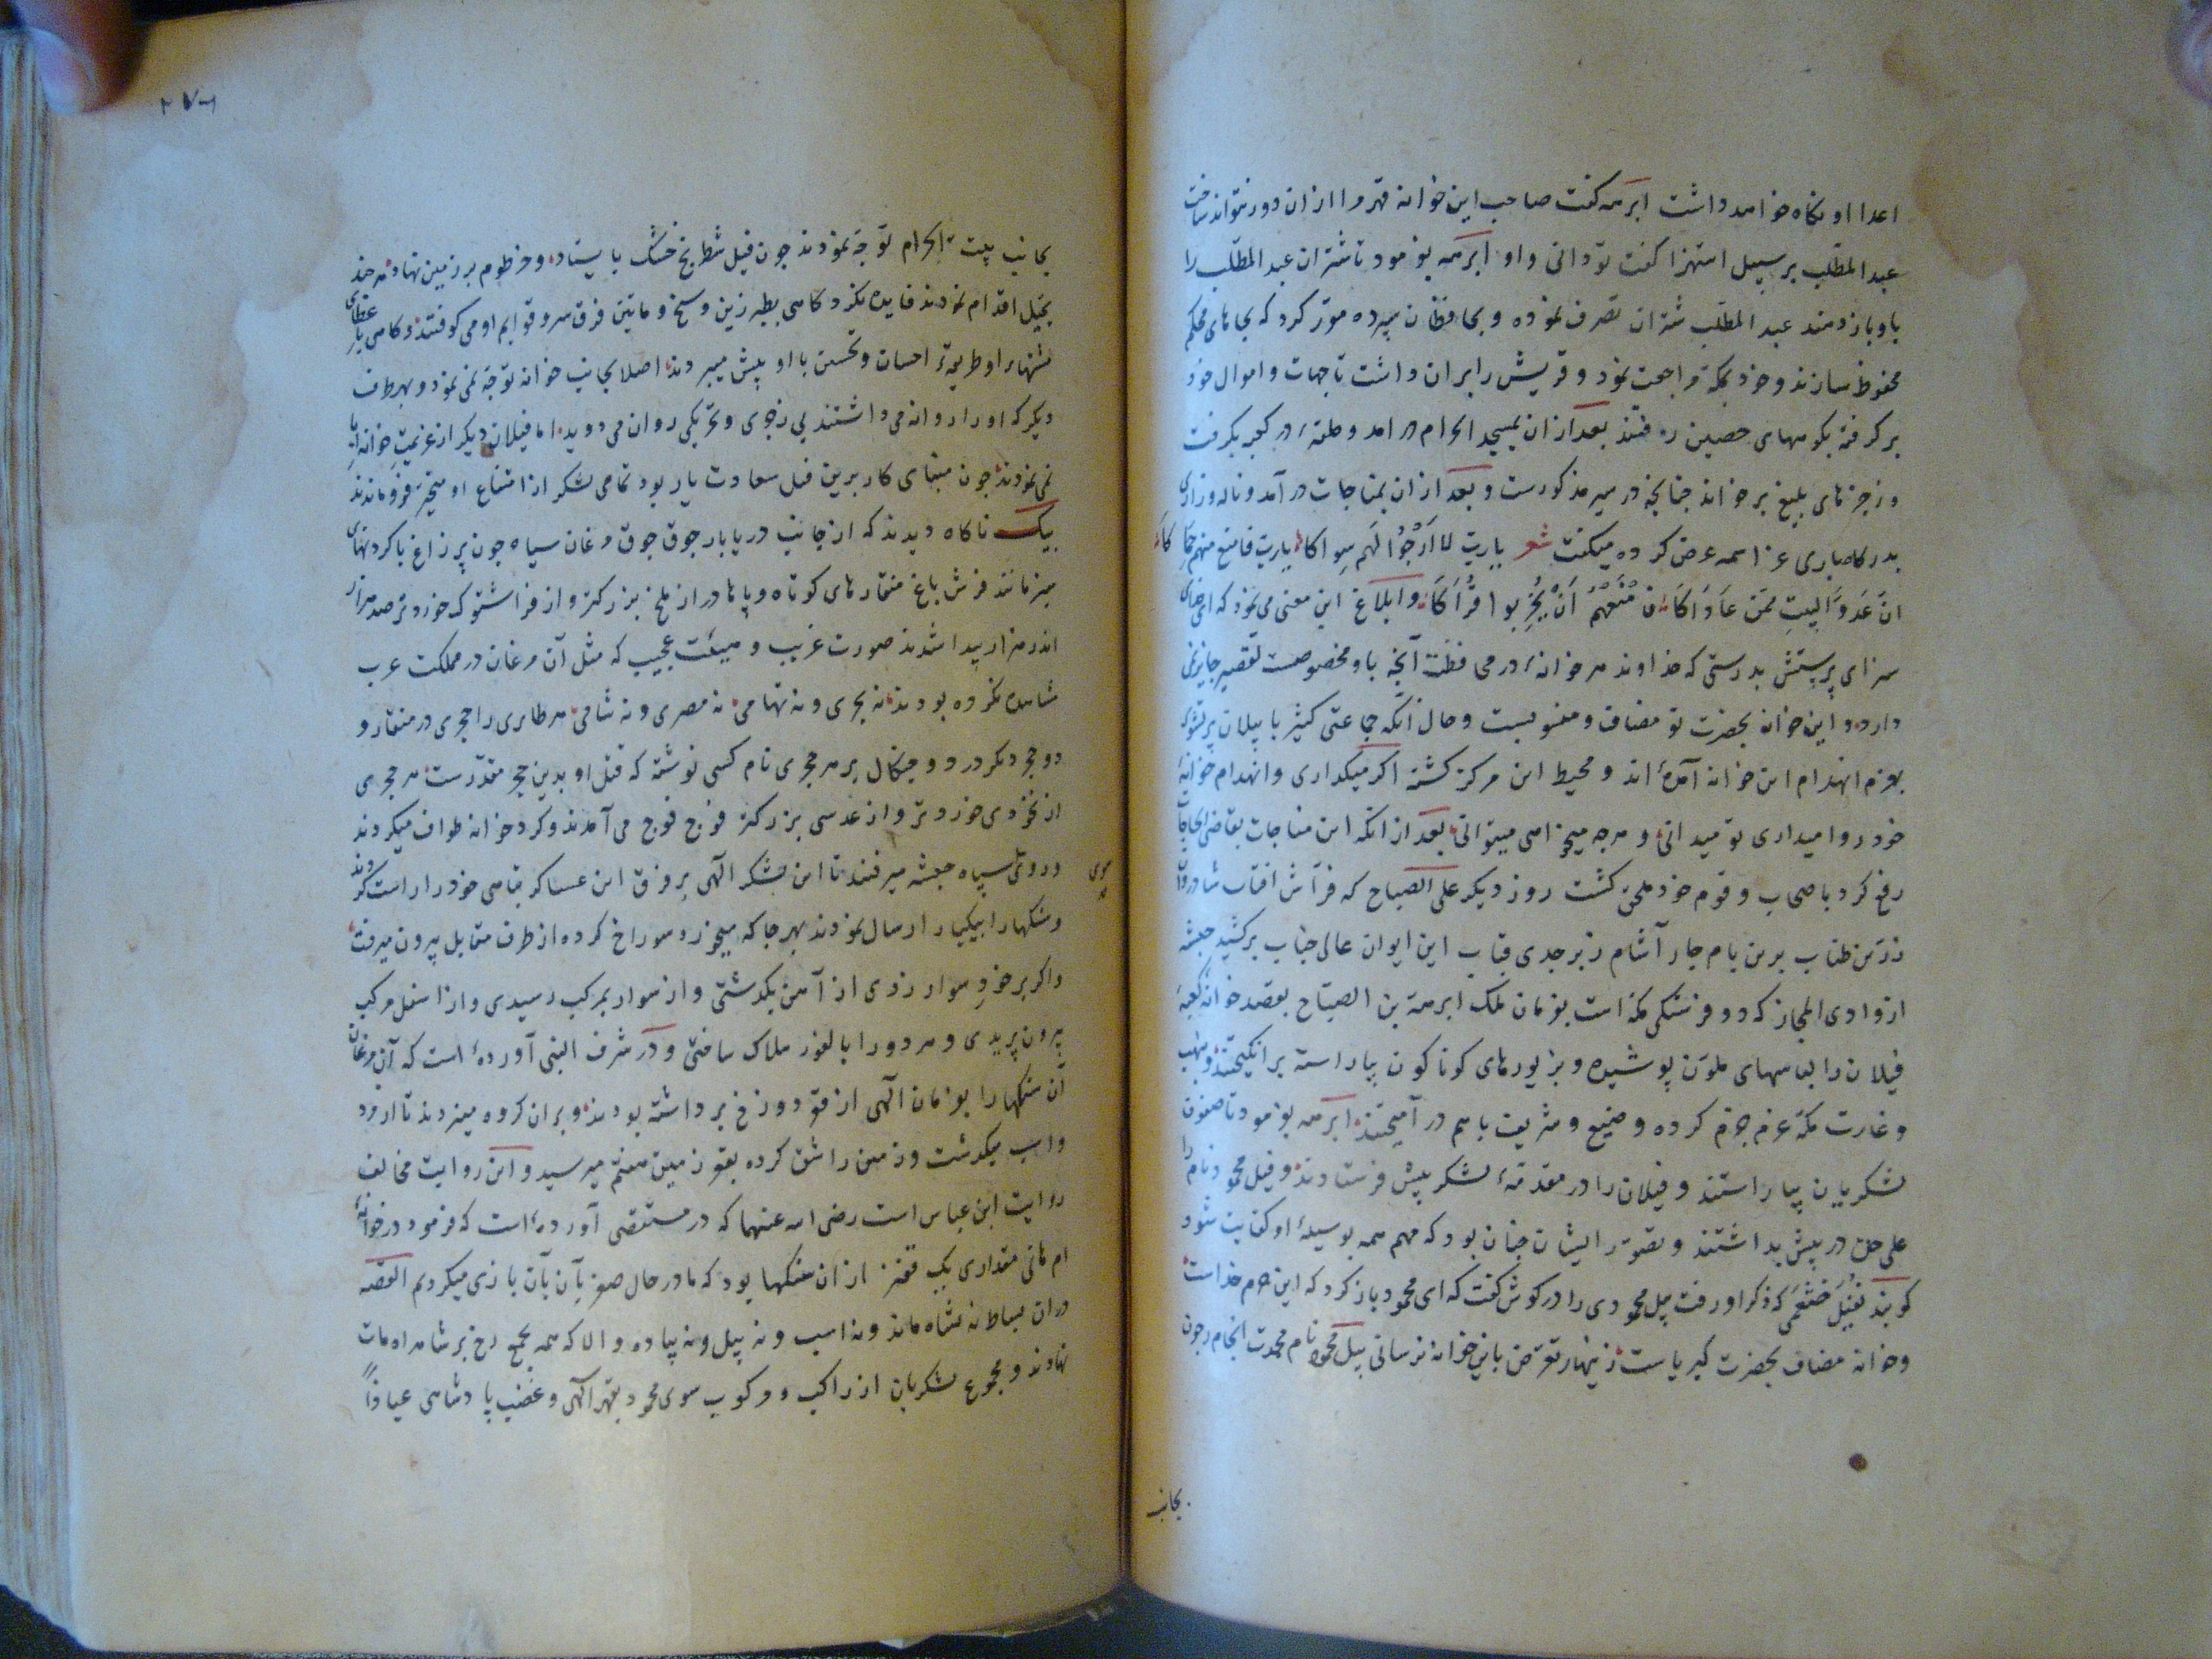 اعدا او نکاه خواهد داشت ابرهه کفت صاحب این خوانه قهر مرا ازان دور نتواند ساخت
عبد المطّلب بر سبیل استهزا کفت تو دانی و او ابرهه بفرمود تا شتران عبد المطّلب را
باو باز دهند عبد المطّلب شتران تصرف نموده و بحافظان سپرده مقرّر کرد که بجاهای محکم
محفوظ سازند و خود بمکّه مراجعت نمود و قریش را بران داشت تا جهات و اموال خود
بر کرفته بکوههای حصین رفتند بعد ازان بمسجد الحرام در امد و حلقهٔ در کعبه بکرفت
و رجزهای بلیغ بر خواند چنانچه در سیر مذکورست و بعد ازان بمناجات در آمد و ناله و زاری
بدرکاه باری عز اسمه عرض کرده میکفت شعر یاربّ لا اَرْجُوا لَهم سِواکا یاربّ فامنع منهم حماکا
انّ عَدوَّ البیتِ مَمَن عَادَاکا امْنَعْهُمُ اَنْ یُخْرِبوا قُرَاکَا و ابلاغ این معنی می نمود که ای خدای
سزای پرستش بدرستی که خداوند هر خوانهٔ در محافظت آنچه باو مخصوصست تقصیر جایز نمی
دارد و این خوانه بحضرت تو مضاف و منسوبست و حال آنکه جماعتی کثیر با پیلان
بعزم انهدام این خوانه آمدهٔ اند و محیط این مرکز کشته اکر میکذاری و انهدام خوانهٔ
خود روا میداری تو میدانی و هر چه میخواهی میتوانی بعد از انکه این مناجات بقاضی الحاجات
رفع کرد باصحاب و قوم خود ملحق کشت روز دیکر علی الصباح که فرّاش افتاب شادروان
زرّین طناب برین بام چار آشام زبرجدی قباب این ایوان عالی جناب برکشید حبشه
از وادی المجاز که دو فرسنکی مکّه است بفرمان ملک ابرهة بن الصبّاح بقصد خوانهٔ کعبه
فیلان را بلباسهای ملوّن پوشیده و بزیورهای کوناکون بیاراسته بر انکیختند و بنهب
و غارت مکّه عزم جزم کرده وضیع و شریف باهم در آمیختند ابرهه بفرمود تا صفوف
لشکریان بیاراستند و فیلان را در مقدمهٔ لشکر پیش فرستادند و فیل محمود نام را
علی حده در پیش بداشتند و تصوّر ایشان چنان بود که مهم همه بوسیلهٔ او کفایت شود
کویند نُفَیْل خَثْعَمی که ذکر او رفت پیل محمودی را در کوش کفت که ای محمود باز کرد که این حرم خداست
و خوانه مضاف بحضرت کبریاست زینهار تعرّض باین خوانه نرسانی پیل محمود نام محمدت انجام چون
بجانب
۲۷۶
بجانب بیت الحرام توجّه نمودند چون فیل شطرنج خشک بایستاد و خرطوم بر زمین نهاد هر چند
بحیَل اقدام نمودند فایده نکرد کاهی بطبرزین و سیخ و مابین فرق سر و قوایم او می کوفتند و کاهی
اشتهاء او طریقهٔ احسان و تحسین با او پیش میبردند اصلا بجانب خوانه توجّه نمی نمود و بهر طرف
دیکر که او را روانه می داشتند بی زجری و تحریکی روان می دوید اما فیلان دیکر از عزیمت خوانه ابا
نمی نمودند چون مبنای کار برین فیل سعادت یار بود تمامی لشکر از امتناع او متحیّر فرو ماندند
بیک ناکاه دیدند که از جانب دریابار جوق جوق مرغان سیاه چون پر زاغ با کردنهای
سبز مانند فرش باغ منقارهای کوتاه و پاها دراز ملخ بزرکتر و از فراشتوک خوردتر صد هزار
اندر هزار پیدا شدند صورت غریب و هیئت عجیب که مثل آن مرغان در مملکت عرب
مشاهده نکرده بودند نه بحری و نه تهامی نه مصری و نه شامی هر طایری را حجری در منقار و
دو حجر دیکر در دو چنکال بر هر حجری نام کسی نوشته که قتل او بدین حجر مقدّرست هر حجری
از نخودی خوردتر و از عدسی بزرکتر فوج فوج می آمدند و کرد خوانه طواف میکردند
و روی سپاه حبشه میرفتند تا این لشکر الهی بر فرق این عساکر تباهی خود را راست کردند
سوی
و سنکها را بیکبار ارسال نمودند بهر جا که میخورد سوراخ کرده از طرف مقابل بیرون میرفت
و اکر بر خود سوار زدی از آهن بکذشتی و از سوار بمرکب رسیدی و از اسفل مرکب
بیرون پریدی و هر دو را بالفور هلاک ساختی و در شرف النبی آوردهٔ است که آن مرغان
آن سنکها را بفرمان الهی از قعر دوزخ برداشته بودند و بران کروه میزدند تا از مرد
و اسب میکذشت و زمین را شق کرده بقعر زمین هفتم میرسید و این روایت مخالف
روایت ابن عباس است رضی الله عنهما که در مستقصی آوردهٔ است که فرمود در خوانهٔ
ام هانی مقداری یک قفیز ازان سنکها بود که ما در حال صغر بآن بازی میکردیم القصه
دران بساط نه شاه ماند و نه اسب و نه پیل و نه پیاده و الا که همه بجمع رخ بر شاهراه مات
نهادند و مجموع لشکریان از راکب و مرکوب سوی محمود بقهر الهی و غضب پادشاهی عیاذاً